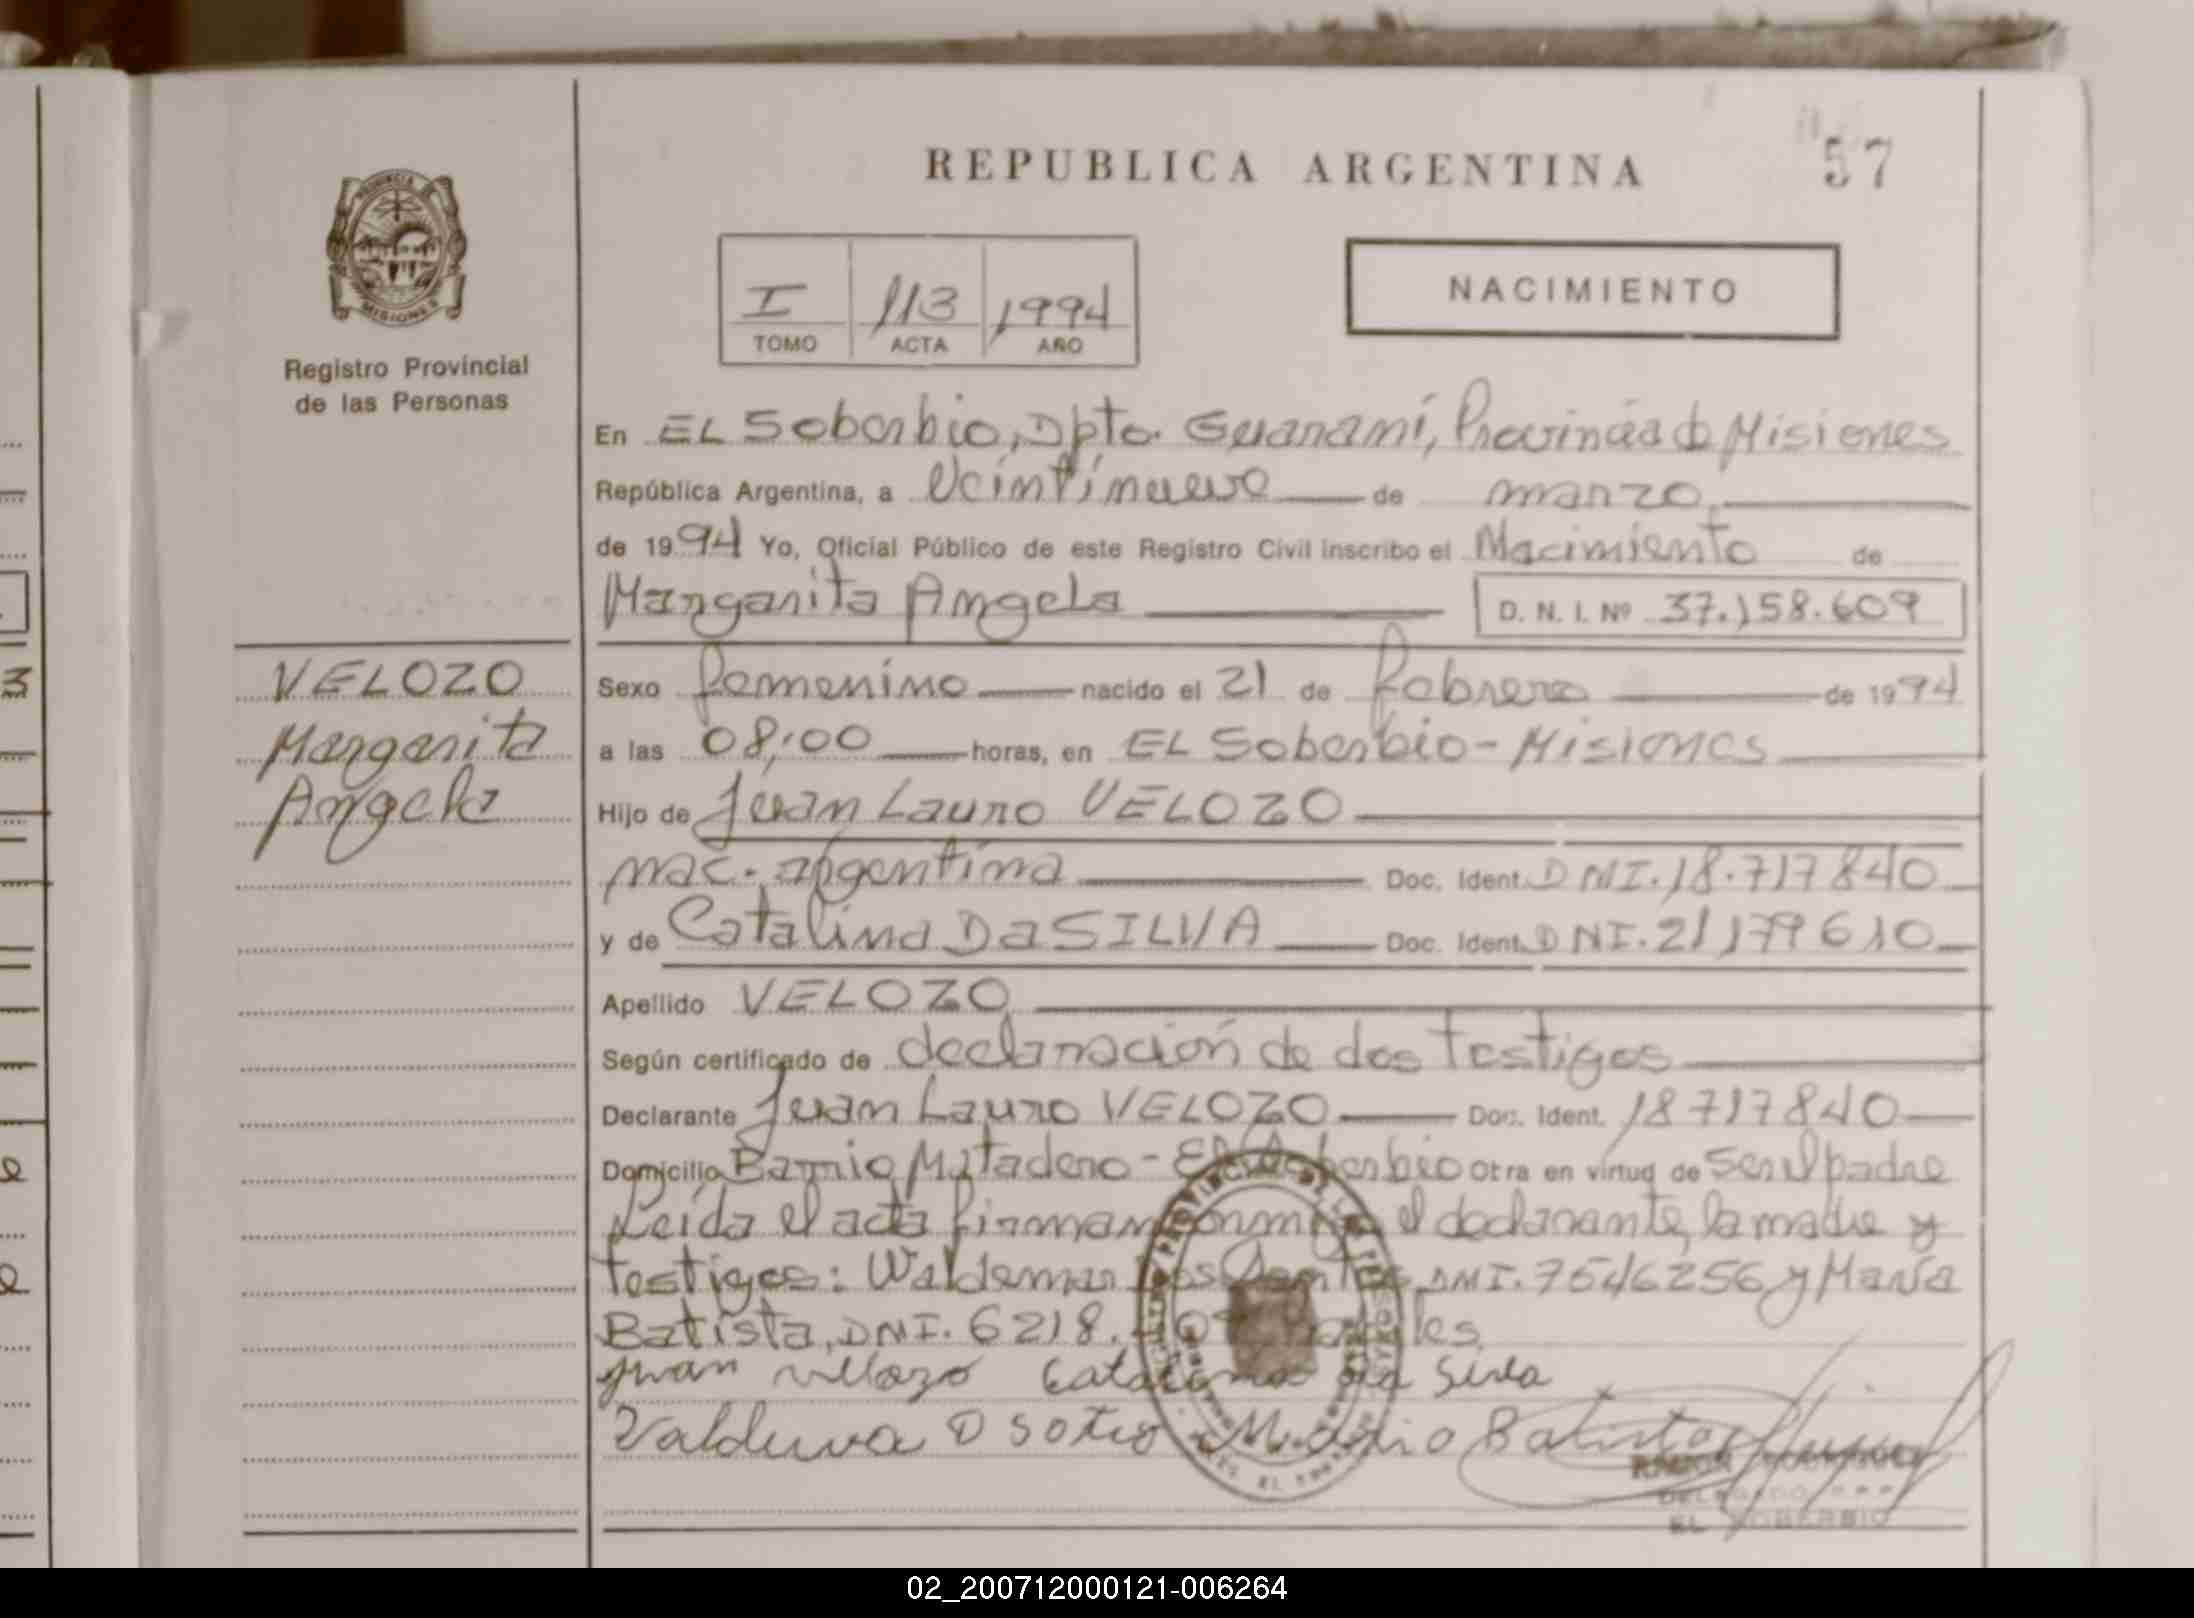 57
REPUBLICA ARGENTINA
PROVINCIA DE
MISIONES
Registro Provincial
de las Personas
I 113 1994
TOMO ACTA AÑO
NACIMIENTO
En EL Soberbio, Dpto. Guaraní, Provincia de Misiones
República Argentina, a Veintinueve de marzo
de 1994 Yo, Oficial Público de este Registro Civil inscribo el Nacimiento de
Margarita Angela D. N. I. Nº 37.158.609
VELOZO
Margarita
Angela
Sexo femenino nacido el 21 de febrero de 1994
a las 08,00 horas, en EL Soberbio - Misiones
Hijo de Juan Lauro VELOZO
nac. argentina Doc. Ident. DNI. 18.717840
y de Catalina Da SILVA Doc. Ident. DNI. 21179610
Apellido VELOZO
Según certificado de declaración de dos testigos
Declarante Juan Lauro VELOZO Doc. Ident. 18717840
Domicilio Barrio Matadero - El Soberbio Otra en virtud de ser el padre
Leída el acta firman conmigo el declarante, la madre y
testigos: Waldemar Dos Santos DNI. 7546256 y María
Batista, DNI. 6218.
Juan Catalina Da Silva
Batista
EL SOBERBIO
02_200712000121-006264